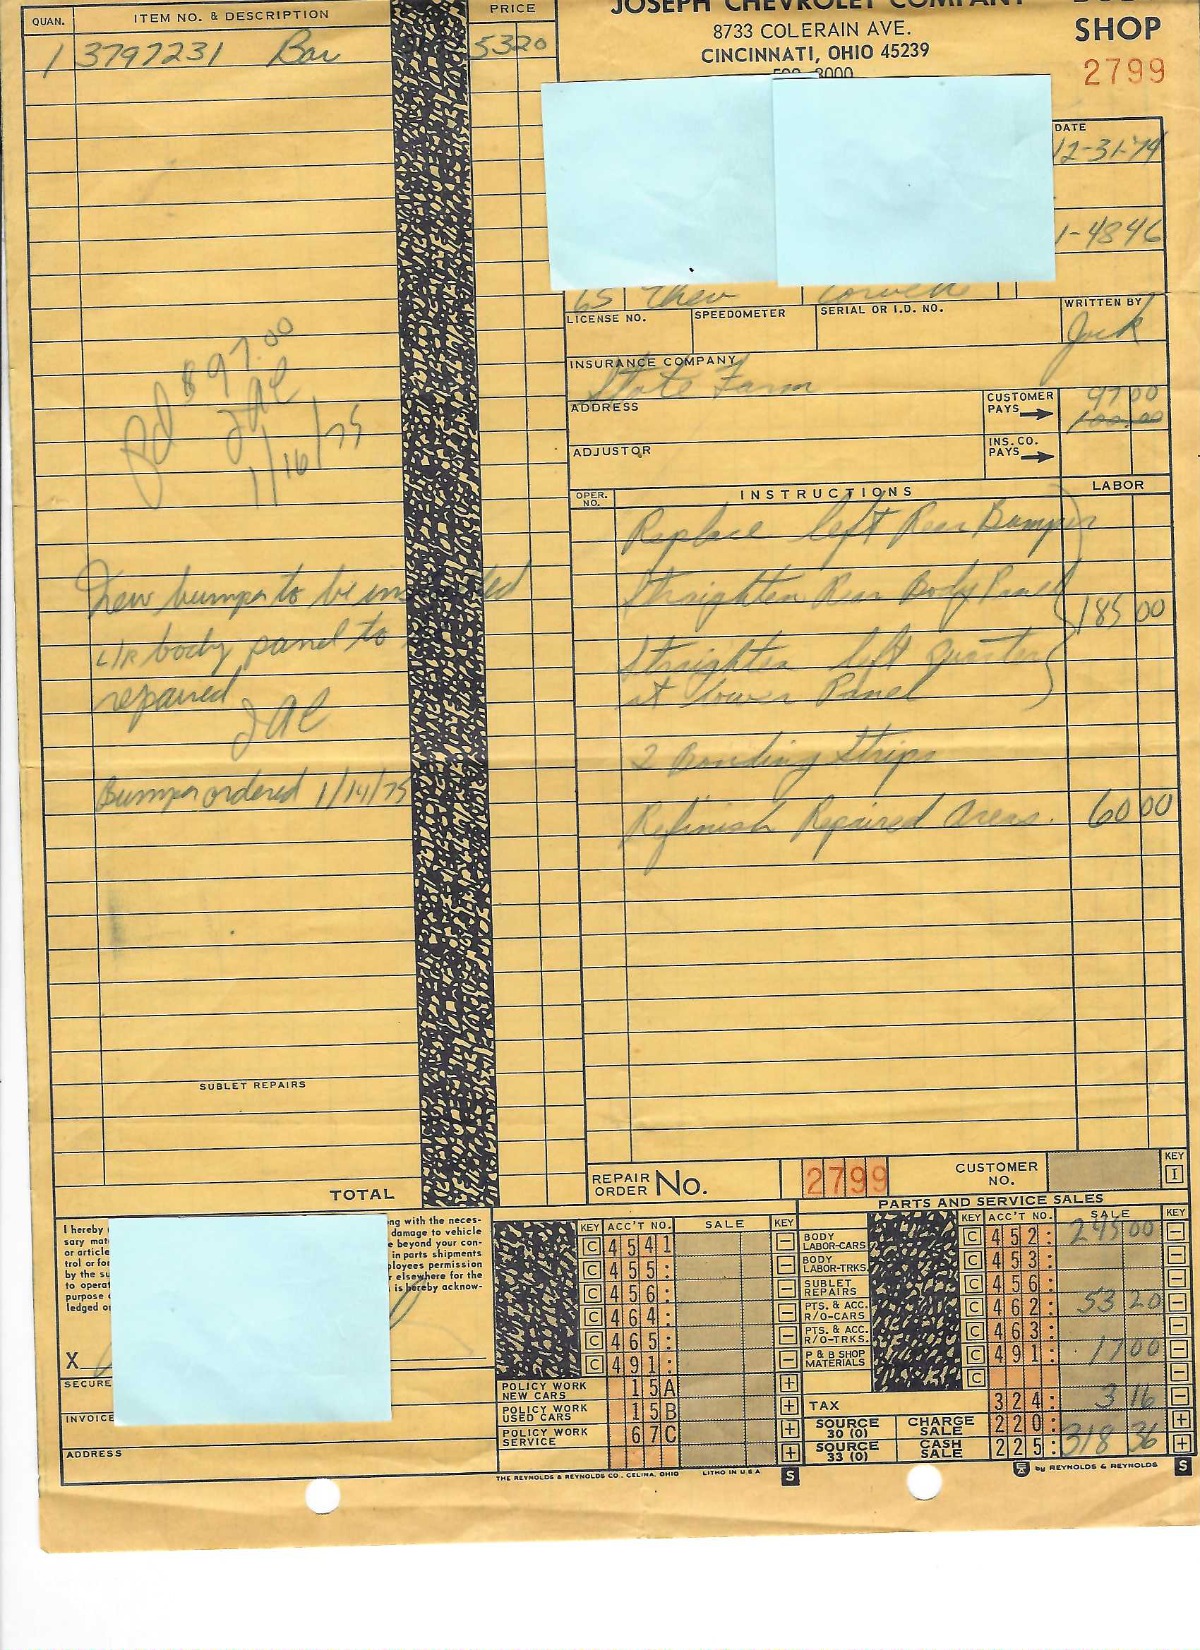 QUAN.
ITEM NO. & DESCRIPTION
PRICE
1 3797231 Bar 5320
Pd $97.00
JAC
1/16/75
New bumper to be installed
L/R body panel to
repaired
JAC
Bumper ordered 1/14/75
SUBLET REPAIRS
TOTAL
JOSEPH CHEVROLET COMPANY
SHOP
8733 COLERAIN AVE.
CINCINNATI, OHIO 45239
2799
DATE
12-31-74
1-4846
65 Chev Corvette
LICENSE NO.
SPEEDOMETER
SERIAL OR I.D. NO.
WRITTEN BY
Jack
INSURANCE COMPANY
State Farm
ADDRESS
CUSTOMER PAYS
97 00
100.00
ADJUSTOR
INS. CO. PAYS
OPER. NO.
INSTRUCTIONS
LABOR
Replace left Rear Bumper
Straighten Rear Body Panel
185 00
Straighten left quarter
at lower Panel
2 Bonding Strips
Refinish Repaired Areas. 60 00
REPAIR ORDER No.
2799
CUSTOMER NO.
KEY
I
I hereby
ng with the neces-
sary mat
damage to vehicle
or article
e beyond your con-
trol or for
in parts shipments
by the su
ployees permission
to operat
r elsewhere for the
purpose
is hereby acknow-
ledged o
X
SECURE
INVOICE
ADDRESS
KEY ACC'T NO. SALE KEY
C 4541 −
C 455: −
C 456: −
C 464: −
C 465: −
C 491: −
POLICY WORK NEW CARS 15A +
POLICY WORK USED CARS 15B +
POLICY WORK SERVICE 67C +
+
PARTS AND SERVICE SALES
KEY ACC'T NO. SALE KEY
BODY LABOR-CARS C 452: 245 00 −
BODY LABOR-TRKS. C 453: −
SUBLET REPAIRS C 456: −
PTS. & ACC. R/O-CARS C 462: 53 20 −
PTS. & ACC. R/O-TRKS. C 463: −
P & B SHOP MATERIALS C 491: 17 00 −
C −
TAX 324: 3 16 −
SOURCE 30 (0) CHARGE SALE 220: +
SOURCE 33 (0) CASH SALE 225: 318 36 +
THE REYNOLDS & REYNOLDS CO., CELINA, OHIO LITHO IN U.S.A.
S
by REYNOLDS & REYNOLDS
S